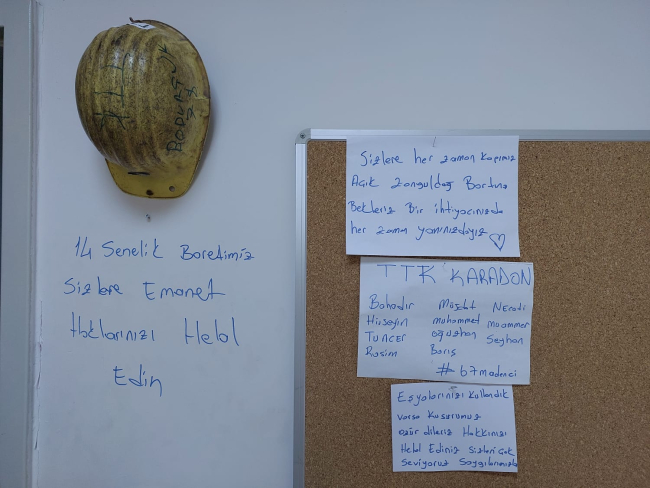 14 Senelik Baretimiz
Sizlere Emanet
Haklarınızı Helal
Edin
Sizlere her zaman kapımız
Açık Zonguldağ Bartına
Bekleriz Bir ihtiyacınızda
her zaman yanınızdayız
TTK KARADON
Bahadır Müşfit
Hüseyin muhammed muammer
TUNCER oğuzhan Seyhan
Rasim Barış
#67madenci
Eşyalarınızı kullandık
varsa kusurumuz
özür dileriz Hakkınızı
Helal Ediniz Sizleri çok
Seviyoruz Saygılarımızla